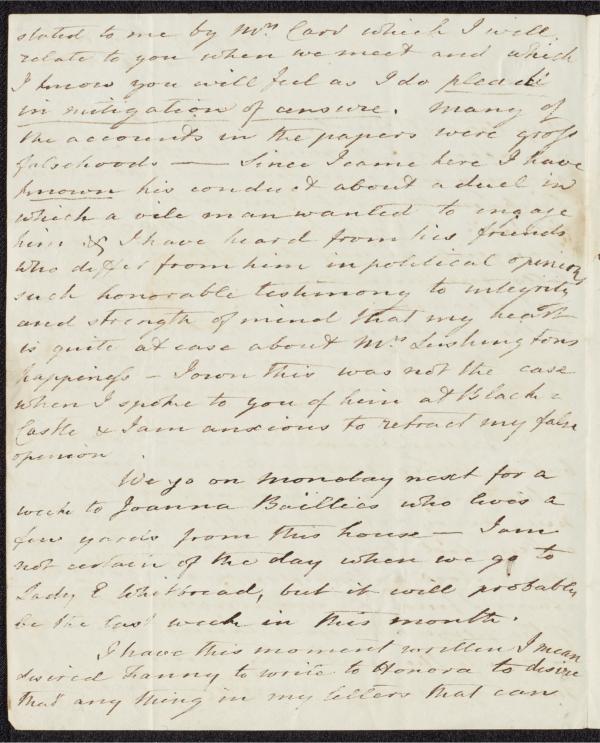 stated to me by Mrs. Carr which I will
relate to you when we meet and which
I know you will feel as I do plead
in mitigation of censure. Many of
the accounts in the papers were gross
falsehoods — Since I came here I have
known his conduct about a duel in
which a vile man wanted to engage
him & I have heard from his friends
who differ from him in political opinions
such honorable testimony to integrity
and strength of mind that my heart
is quite at ease about Mrs. Lushingtons
happiness – I own this was not the case
when I spoke to you of him at Black =
Castle & I am anxious to retract my false
opinion
We go on Monday next for a
week to Joanna Baillies who lives a
few yards from this house – I am
not certain of the day when we go to
Lady E Whitbread, but it will probably
be the last week in this month.
I have this moment written I mean
desired Fanny to write to Honora to desire
that any thing in my letters that can